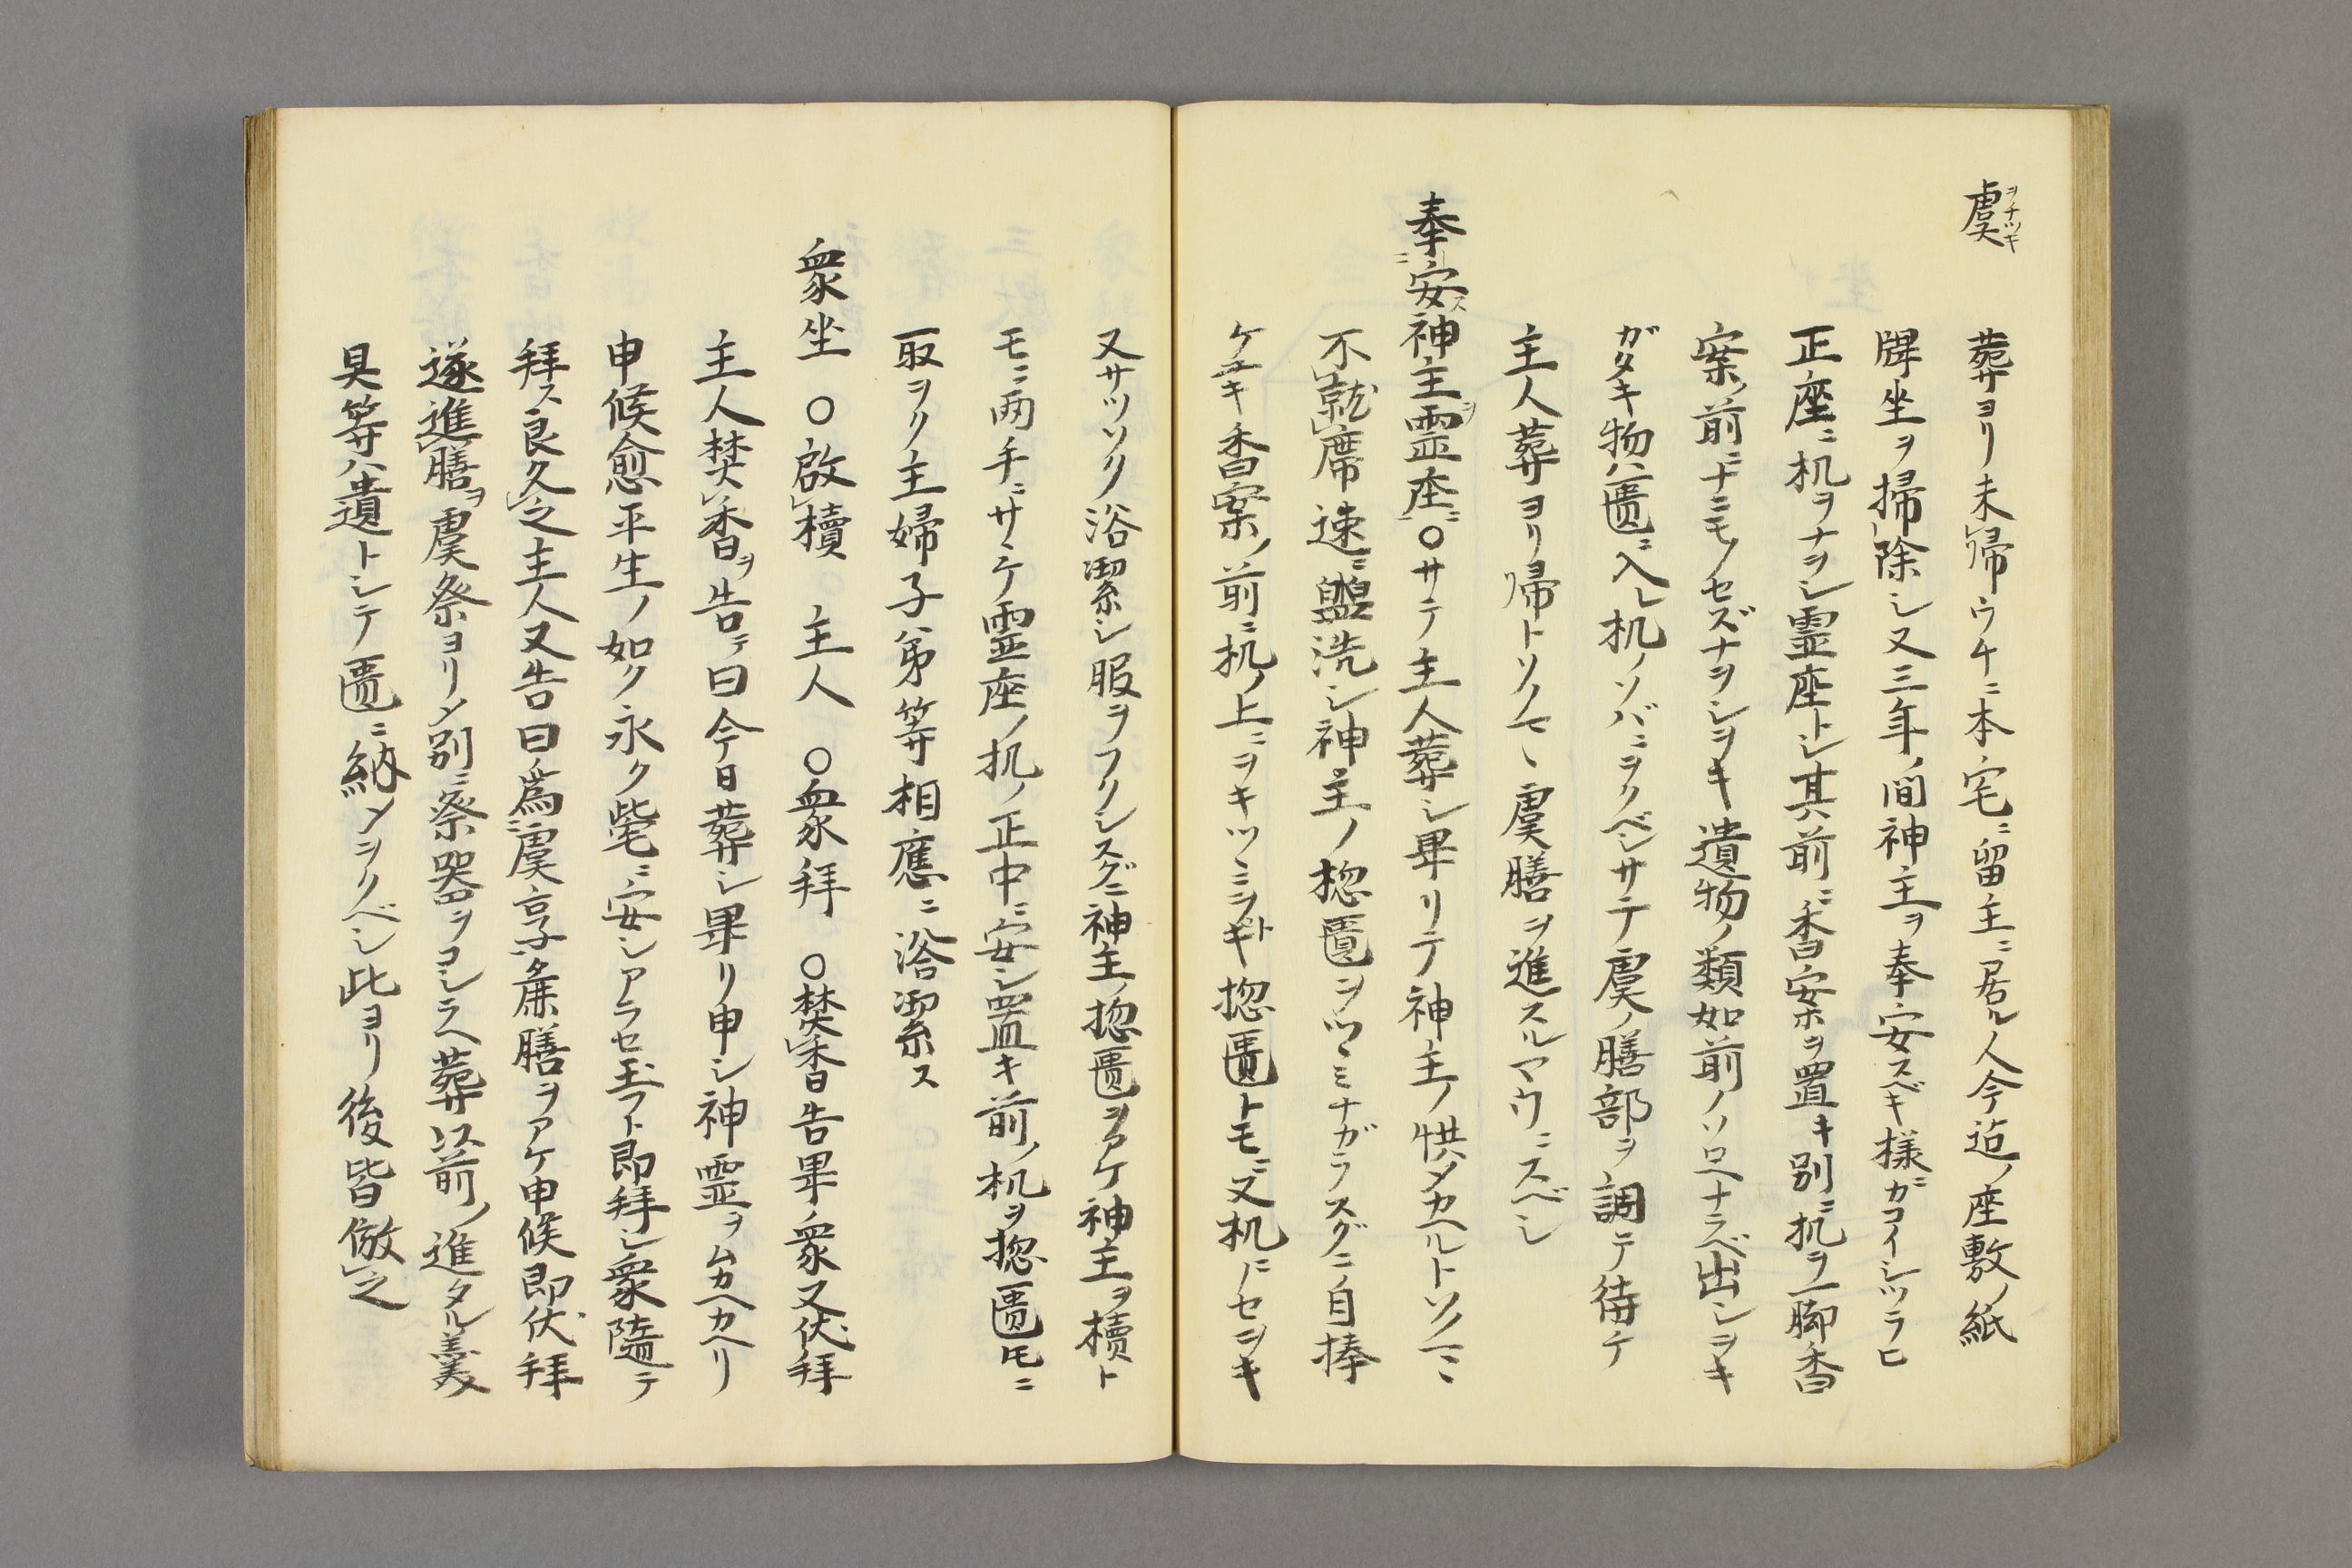 虞ヲチツキ
葬ヨリ未帰ウケニ本宅ニ留主ニ居ル人今迠ノ座敷ノ紙
牌坐ヲ掃除シ又三年ノ間神主ヲ奉安スベキ様ニガコイシツラヒ
正座ニ机ヲナヲシ霊座トシ其前ニ香案ヲ置キ別ニ机ヲ一脚香
案ノ前ニナニモノセズナヲシヲキ遺物ノ類如前ノソロヘナラベ出シヲキ
ガタキ物ハ匱ニ入レ机ノソバニヲクベシサテ虞ノ膳部ヲ調テ待テ
主人葬ヨリ帰トソノマヽ虞膳ヲ進スルマウニスベシ
奉安ス神主ヲ霊座ニ○サテ主人葬シ畢リテ神主ノ供メカヘルトソノマヽ
不就席速ニ盥洗シ神主ノ惣匱ヲツヽミナガラスグニ自捧
ケユキ香案ノ前ニ机ノ上ニヲキツヽミヲトキ惣匱トモニ又机ニノセヲキ
又サツソク浴潔シ服ヲフクシスグニ神主ノ惣匱ヲアケ神主ヲ櫝ト
モニ両手ニサヽケ霊座ノ机ノ正中ニ安シ置キ前ノ机ヲ惣匱トモニ
取ヲク主婦子弟等相應ニ浴潔ス
衆坐 ○啟櫝 主人 ○衆拜 ○焚香告畢ノ衆又伏拜
主人焚香ヲ告テ曰今日葬シ畢リ申シ神霊ヲムカヘカヘリ
申候愈平生ノ如ク永ク此宅ニ安シアラセ玉フト即拜シ衆隨テ
拜ス良久之主人又告曰為虞享粢膳ヲアケ申候即伏拜
遂進膳ヲ虞祭ヨリ〆別ニ祭器ヲコシラヘ葬以前ノ進タル羹
具等ハ遺トシテ匱ニ納メヲクベシ此ヨリ後皆倣之